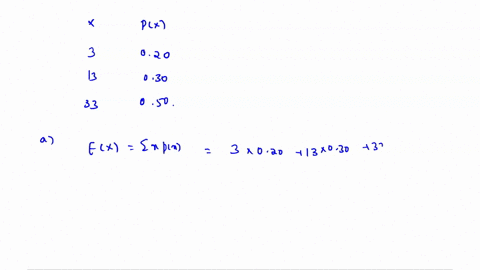 x P(x)
3 0.20
13 0.30
33 0.50.
a) E(x) = Σx p(x) = 3 × 0.20 + 13 × 0.30 + 3